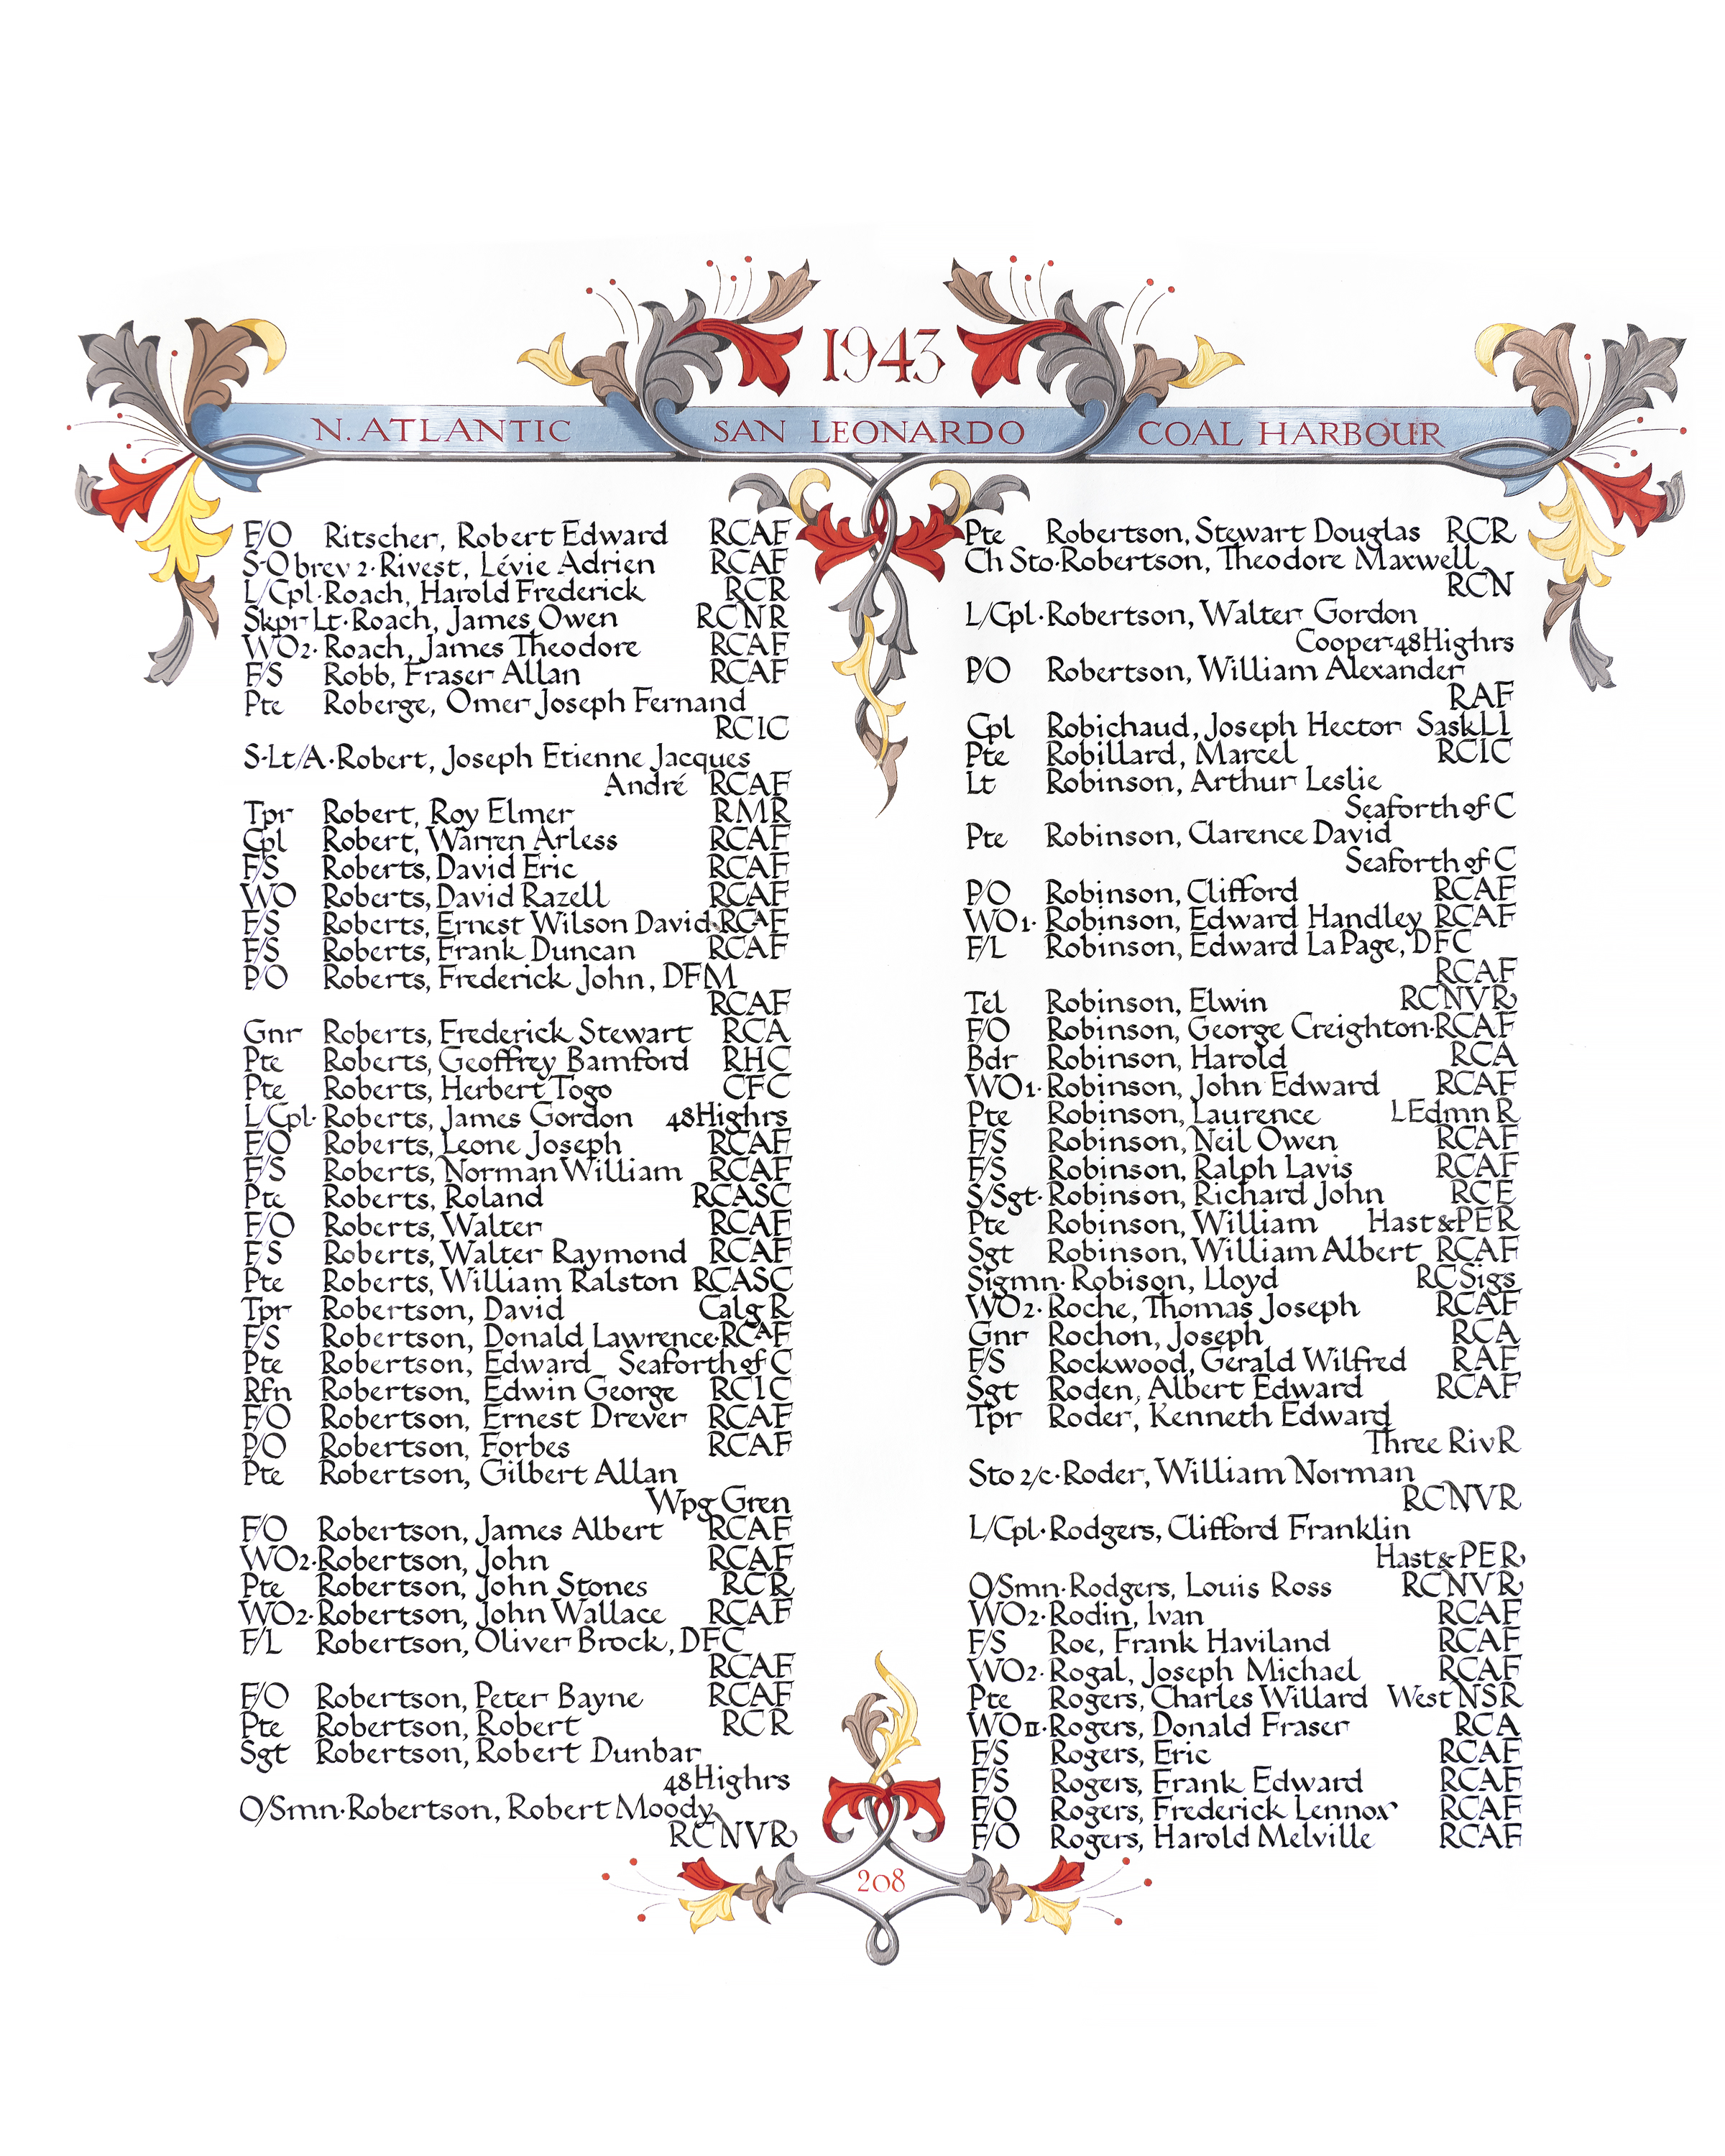 1943
N. ATLANTIC SAN LEONARDO COAL HARBOUR
F/O Ritscher, Robert Edward RCAF
S-O brev 2·Rivest, Lévie Adrien RCAF
L/Cpl·Roach, Harold Frederick RCR
Skpr Lt·Roach, James Owen RCNR
WO2·Roach, James Theodore RCAF
F/S Robb, Fraser Allan RCAF
Pte Roberge, Omer Joseph Fernand
RCIC
S-Lt/A·Robert, Joseph Etienne Jacques
André RCAF
Tpr Robert, Roy Elmer RMR
Cpl Robert, Warren Arless RCAF
F/S Roberts, David Eric RCAF
WO Roberts, David Razell RCAF
F/S Roberts, Ernest Wilson David·RCAF
F/S Roberts, Frank Duncan RCAF
P/O Roberts, Frederick John, DFM
RCAF
Gnr Roberts, Frederick Stewart RCA
Pte Roberts, Geoffrey Bamford RHC
Pte Roberts, Herbert Togo CFC
L/Cpl·Roberts, James Gordon 48Highrs
F/O Roberts, Leone Joseph RCAF
F/S Roberts, Norman William RCAF
Pte Roberts, Roland RCASC
F/O Roberts, Walter RCAF
F/S Roberts, Walter Raymond RCAF
Pte Roberts, William Ralston RCASC
Tpr Robertson, David Calg R
F/S Robertson, Donald Lawrence·RCAF
Pte Robertson, Edward Seaforth of C
Rfn Robertson, Edwin George RCIC
F/O Robertson, Ernest Drever RCAF
P/O Robertson, Forbes RCAF
Pte Robertson, Gilbert Allan
Wpg Gren
F/O Robertson, James Albert RCAF
WO2·Robertson, John RCAF
Pte Robertson, John Stones RCR
WO2·Robertson, John Wallace RCAF
F/L Robertson, Oliver Brock, DFC
RCAF
F/O Robertson, Peter Bayne RCAF
Pte Robertson, Robert RCR
Sgt Robertson, Robert Dunbar
48Highrs
O/Smn·Robertson, Robert Moody
RCNVR
Pte Robertson, Stewart Douglas RCR
Ch Sto·Robertson, Theodore Maxwell
RCN
L/Cpl·Robertson, Walter Gordon
Cooper·48Highrs
P/O Robertson, William Alexander
RAF
Cpl Robichaud, Joseph Hector SaskLI
Pte Robillard, Marcel RCIC
Lt Robinson, Arthur Leslie
Seaforth of C
Pte Robinson, Clarence David
Seaforth of C
P/O Robinson, Clifford RCAF
WO1·Robinson, Edward Handley RCAF
F/L Robinson, Edward LaPage, DFC
RCAF
Tel Robinson, Elwin RCNVR
F/O Robinson, George Creighton·RCAF
Bdr Robinson, Harold RCA
WO1·Robinson, John Edward RCAF
Pte Robinson, Laurence LEdmn R
F/S Robinson, Neil Owen RCAF
F/S Robinson, Ralph Lavis RCAF
S/Sgt·Robinson, Richard John RCE
Pte Robinson, William Hast&PER
Sgt Robinson, William Albert RCAF
Sigmn·Robison, Lloyd RCSigs
WO2·Roche, Thomas Joseph RCAF
Gnr Rochon, Joseph RCA
F/S Rockwood, Gerald Wilfred RAF
Sgt Roden, Albert Edward RCAF
Tpr Roder, Kenneth Edward
Three RivR
Sto 2/c·Roder, William Norman
RCNVR
L/Cpl·Rodgers, Clifford Franklin
Hast&PER
O/Smn·Rodgers, Louis Ross RCNVR
WO2·Rodin, Ivan RCAF
F/S Roe, Frank Haviland RCAF
WO2·Rogal, Joseph Michael RCAF
Pte Rogers, Charles Willard West NSR
WOII·Rogers, Donald Fraser RCA
F/S Rogers, Eric RCAF
F/S Rogers, Frank Edward RCAF
F/O Rogers, Frederick Lennox RCAF
F/O Rogers, Harold Melville RCAF
208